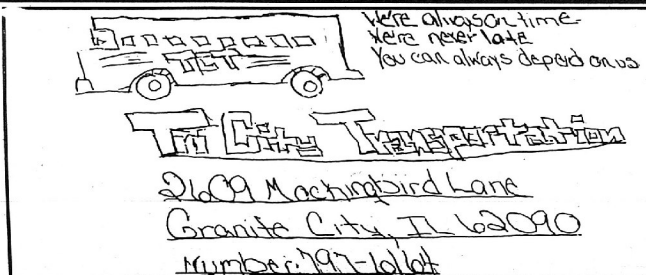 We're always on time
We're never late
You can always depend on us
TCT
Tri City Transportation
2609 Mockingbird Lane
Granite City, IL 62090
Number: 797-6164